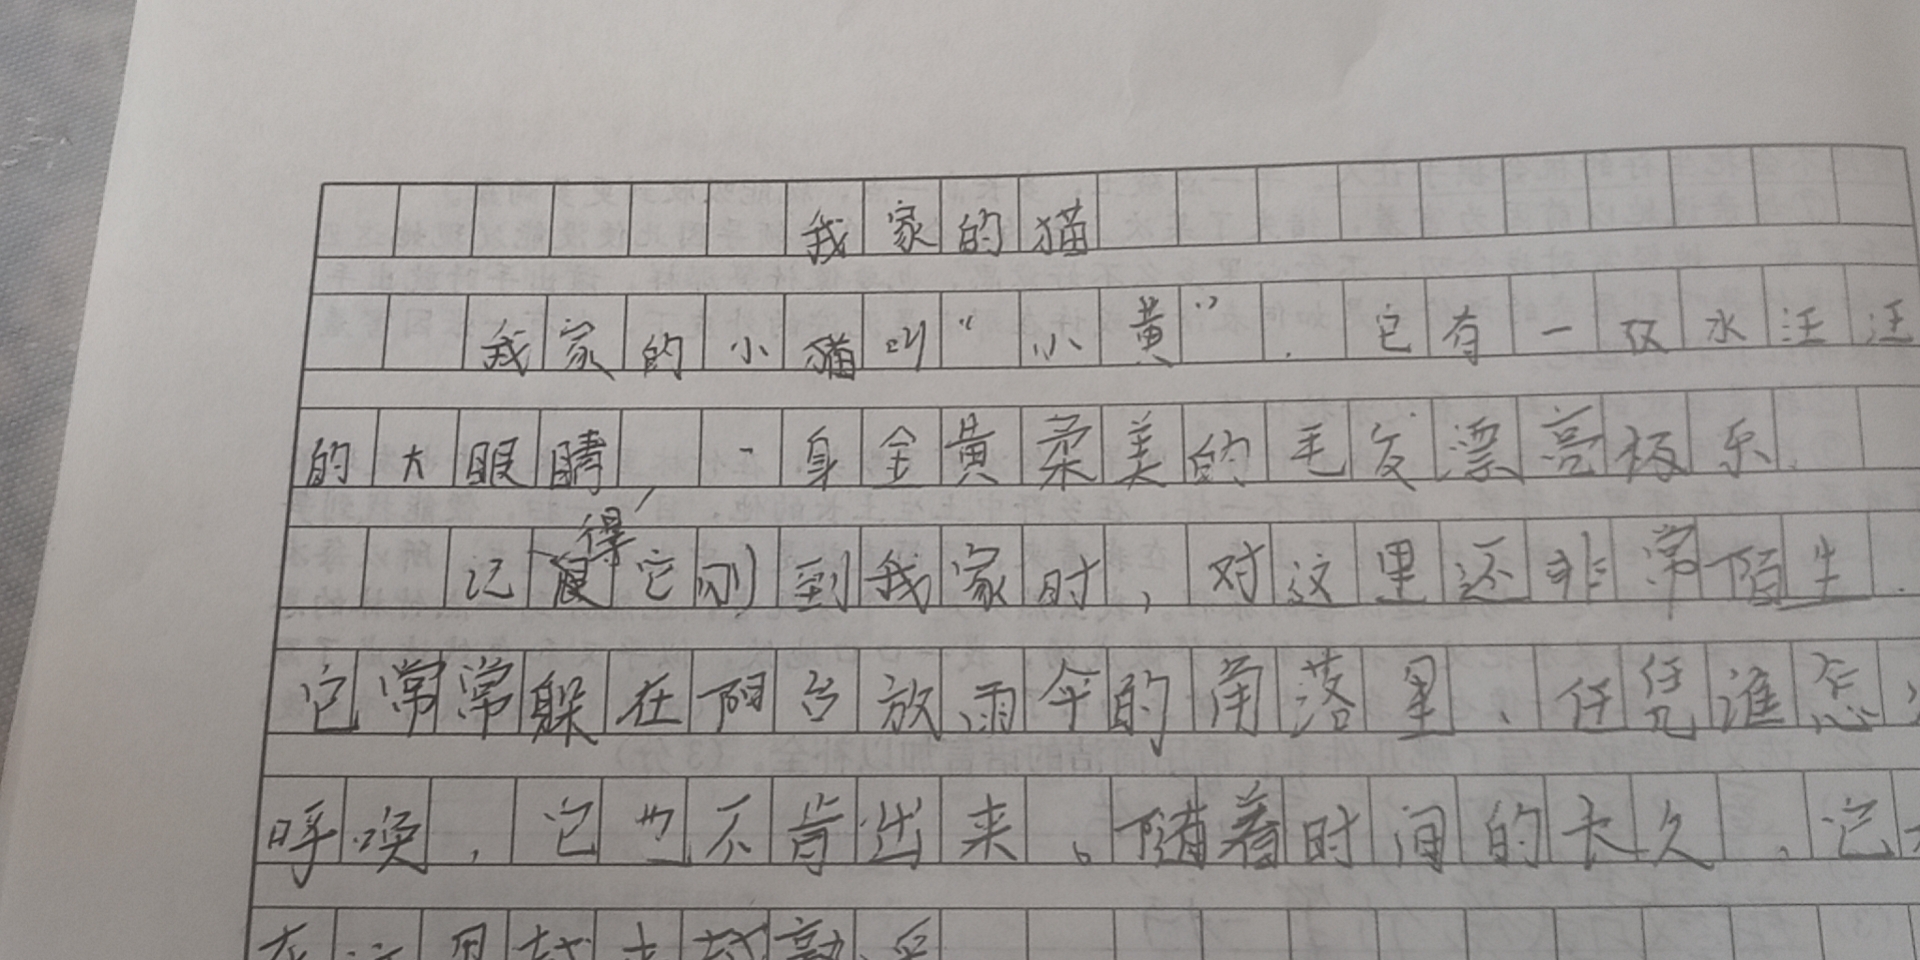 我家的猫
我家的小猫叫“小黄”.它有一双水汪汪
的大眼睛,一身金黄柔美的毛发漂亮极乐
记得它刚到我家时,对这里还非常陌生.
它常常躲在阳台放雨伞的角落里、任凭谁怎
呼唤,它也不肯出来。随着时间的长久、它
在这里越来越熟悉